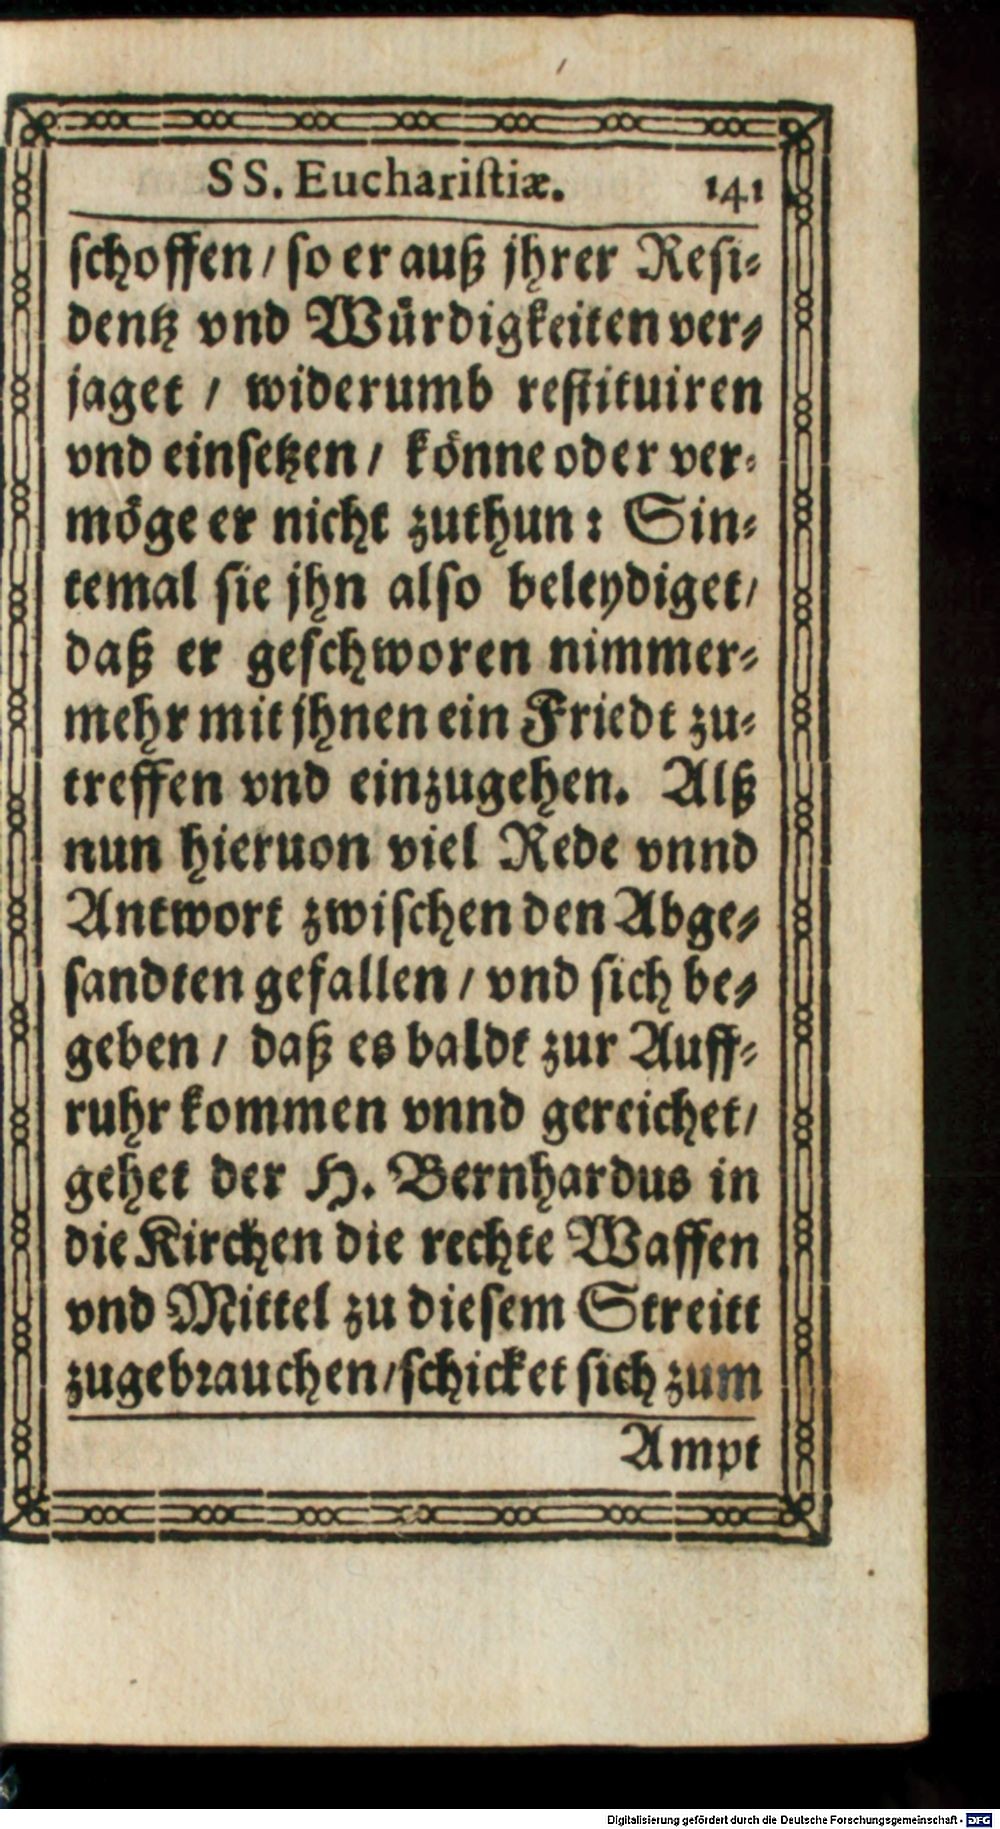 SS. Euchariſtiæ. 141
ſchoffen / ſo er auß jhrer Reſi-
dentz vnd Wuͤrdigkeiten ver-
jaget / widerumb reſtituiren
vnd einſetzen / koͤnne oder ver-
moͤge er nicht zuthun: Sin-
temal ſie jhn alſo beleydiget /
daß er geſchworen nimmer-
mehr mit jhnen ein Friedt zu-
treffen vnd einzugehen. Alß
nun hieruon viel Rede vnnd
Antwort zwiſchen den Abge-
ſandten gefallen / vnd ſich be-
geben / daß es baldt zur Auff-
ruhr kommen vnnd gereichet /
gehet der H. Bernhardus in
die Kirchen die rechte Waffen
vnd Mittel zu dieſem Streitt
zugebrauchen / ſchicket ſich zum
Ampt
Digitalisierung gefördert durch die Deutsche Forschungsgemeinschaft - DFG